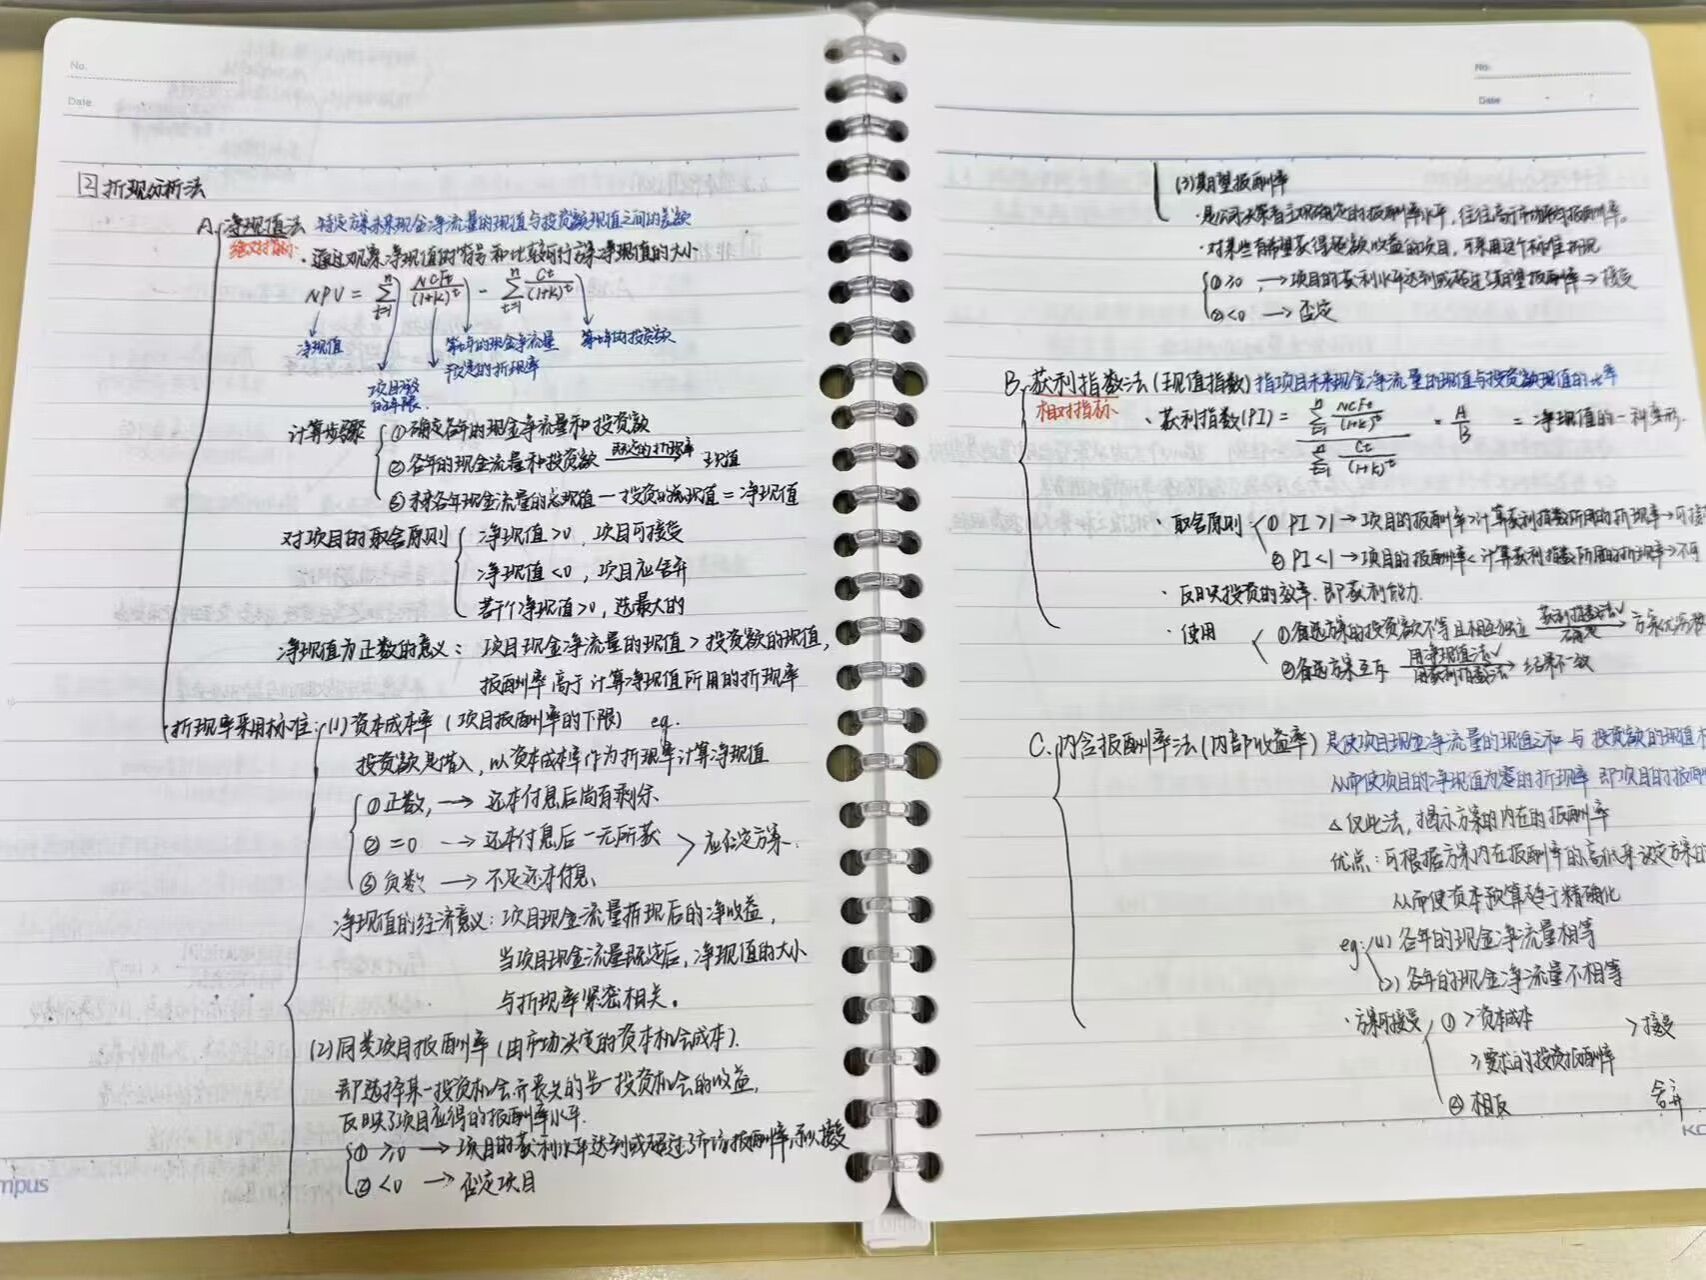 No.
Date
2 折现分析法
A. 净现值法 特定方案未来现金净流量的现值与投资额现值之间的差额
绝对指标 · 通过观察净现值的符号和比较可行方案净现值的大小
NPV = Σ(t=1→n) NCFt/(1+k)^t - Σ(t=1→n) Ct/(1+k)^t
净现值 第t年的现金净流量 第t年的投资额
预定的折现率
项目
的年限.
计算步骤 ①确定各年的现金净流量和投资额
②各年的现金流量和投资额 既定的折现率→ 现值
③未来各年现金流量的总现值 — 投资的总现值 = 净现值
对项目的取舍原则 净现值 >0, 项目可接受
净现值 <0, 项目应舍弃
若干个净现值 >0, 选最大的
净现值为正数的意义: 项目现金净流量的现值 > 投资额的现值,
报酬率高于计算净现值所用的折现率
·折现率采用标准: (1) 资本成本率 (项目报酬率的下限) eg.
投资额是借入, 以资本成本率作为折现率计算净现值
①正数, → 还本付息后尚有剩余.
② =0 → 还本付息后一无所获 > 应否定方案.
③负数 → 不足还本付息.
净现值的经济意义: 项目现金流量折现后的净收益,
当项目现金流量既定后, 净现值的大小
与折现率紧密相关。
(2) 同类项目报酬率 (由市场决定的资本机会成本).
即选择某一投资机会所丧失的另一投资机会的收益,
反映了项目应得的报酬率水平.
① ≥0 → 项目的获利水平达到或超过了市场报酬率, 所以接受
② <0 → 否定项目
mpus
No.
Date
(3) 期望报酬率
·是公司决策者主观确定的报酬率水平, 往往高于市场平均报酬率。
·对某些有希望获得超额收益的项目, 可采用这个标准折现
① ≥0 → 项目的获利水平达到或超过了期望报酬率 → 接受
② <0 → 否定
B. 获利指数法 (现值指数) 指项目未来现金净流量的现值与投资额现值的比率
相对指标 · 获利指数(PI) = Σ(t=1→n) NCFt/(1+k)^t / Σ(t=1→n) Ct/(1+k)^t = A/B = 净现值的一种变形.
· 取舍原则 ① PI >1 → 项目的报酬率>计算获利指数所用的折现率→可接
② PI <1 → 项目的报酬率<计算获利指数所用的折现率→不可
· 反映投资的效率. 即获利能力.
· 使用 ①备选方案的投资额不等且相互独立 获利指数法√ → 方案优劣
②备选方案互斥 用净现值法√ 用获利指数法 → 结果不一致
C. 内含报酬率法 (内部收益率) 是使项目现金净流量的现值之和与投资额的现值相
从而使项目的净现值为零的折现率 即项目的报酬
△ 仅此法, 揭示方案的内在的报酬率
优点: 可根据方案内在报酬率的高低来设定方案的
从而使资本预算趋于精确化
eg: (1) 各年的现金净流量相等
(2) 各年的现金净流量不相等
· 方案可接受 ① >资本成本 > 接受
>要求的投资报酬率
② 相反 舍弃
KO